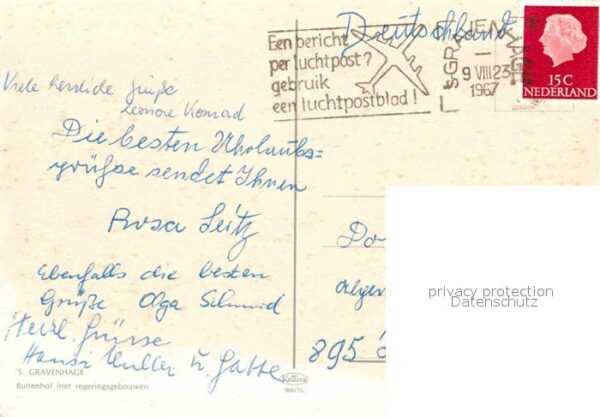 Deutschland
Een bericht
per luchtpost?
gebruik
een luchtpostblad!
'SGRAVENHAGE
9 VIII 23
1967
15 C
NEDERLAND
Viele herzliche Grüße
Leonore Konrad
Die besten Uhrlaubs=
grüße sendet Ihnen
Rosa Seitz
Ebenfalls die besten
Grüße Olga Schmid
Herzl. Grüsse
Hansi Müller u. Gatte
895
privacy protection
Datenschutz
'S. GRAVENHAGE
Buitenhof met regeringsgebouwen